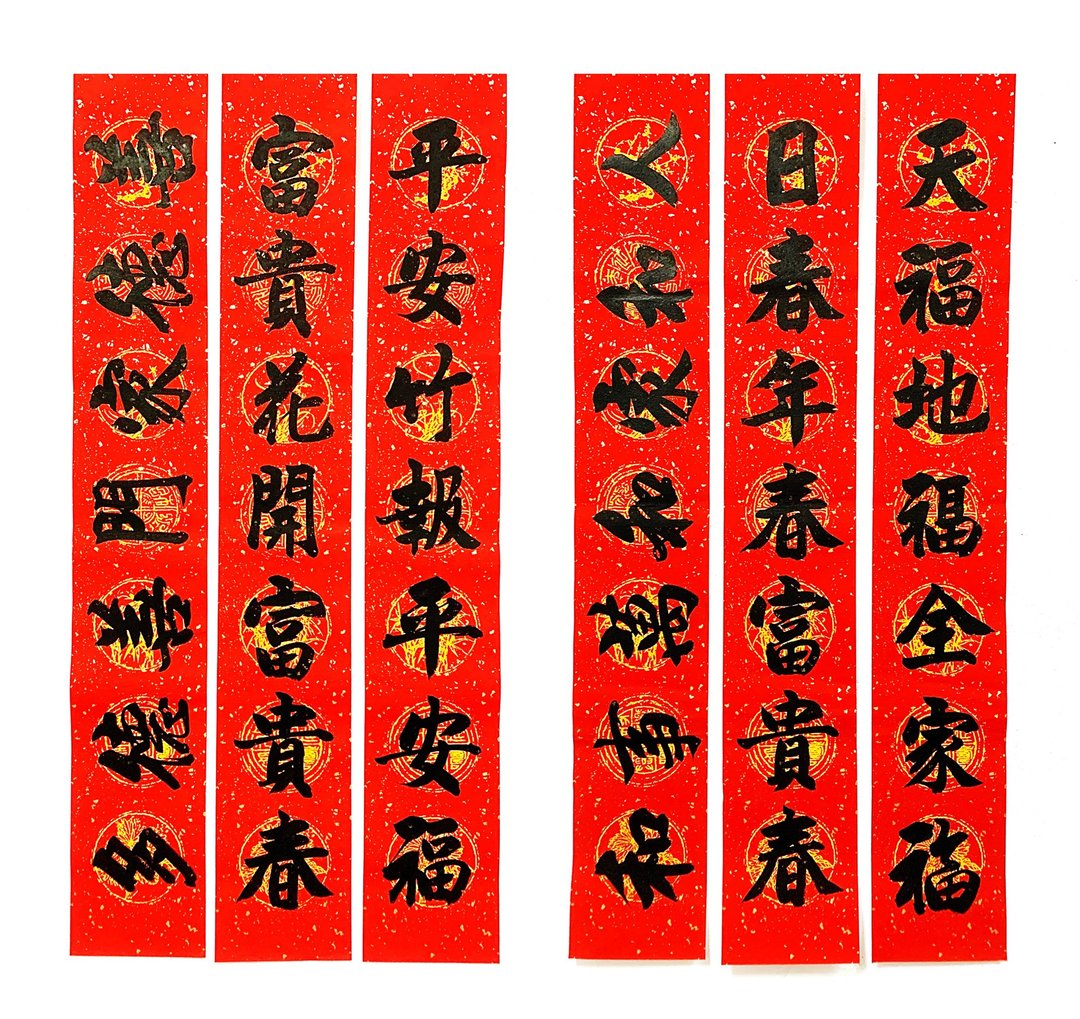 天福地福全家福
日春年春富貴春
人和家和萬事和
平安竹報平安福
富貴花開富貴春
善德家門善德多